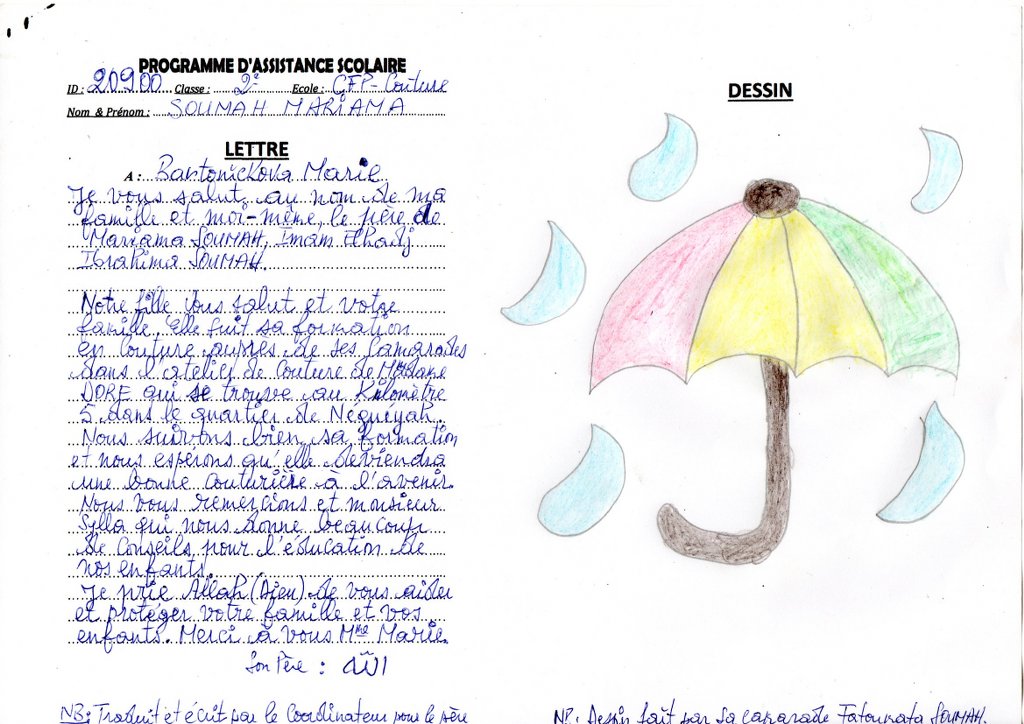 PROGRAMME D'ASSISTANCE SCOLAIRE
ID : 20900 Classe : 2e Ecole : CFP-Couture
Nom & Prénom : SOUMAH MARIAMA
LETTRE
A : Bartonickova Marie
Je vous salut au nom de ma
famille et moi-même le père de
Mariama SOUMAH, Imam Elhadj
Ibrahima SOUMAH.
Notre fille vous salut et votre
famille. Elle fuit sa formation
en couture auprès de ses camarades
dans l'atelier de couture de Madame
DORE qui se trouve au Kilomètre
5 dans le quartier de Nequeyah.
Nous suivons bien sa formation
et nous espérons qu'elle deviendra
une bonne couturière à l'avenir.
Nous vous remercions et monsieur
Sylla qui nous donne beaucoup
de conseils pour l'éducation de
nos enfants.
Je prie Allah (Dieu) de vous aider
et protéger votre famille et vos
enfants. Merci à vous Mme Marie.
Son Père :
NB : Traduit et écrit par le Coordinateur pour le père
DESSIN
NB : Dessin fait par sa camarade Fatoumata SOUMAH